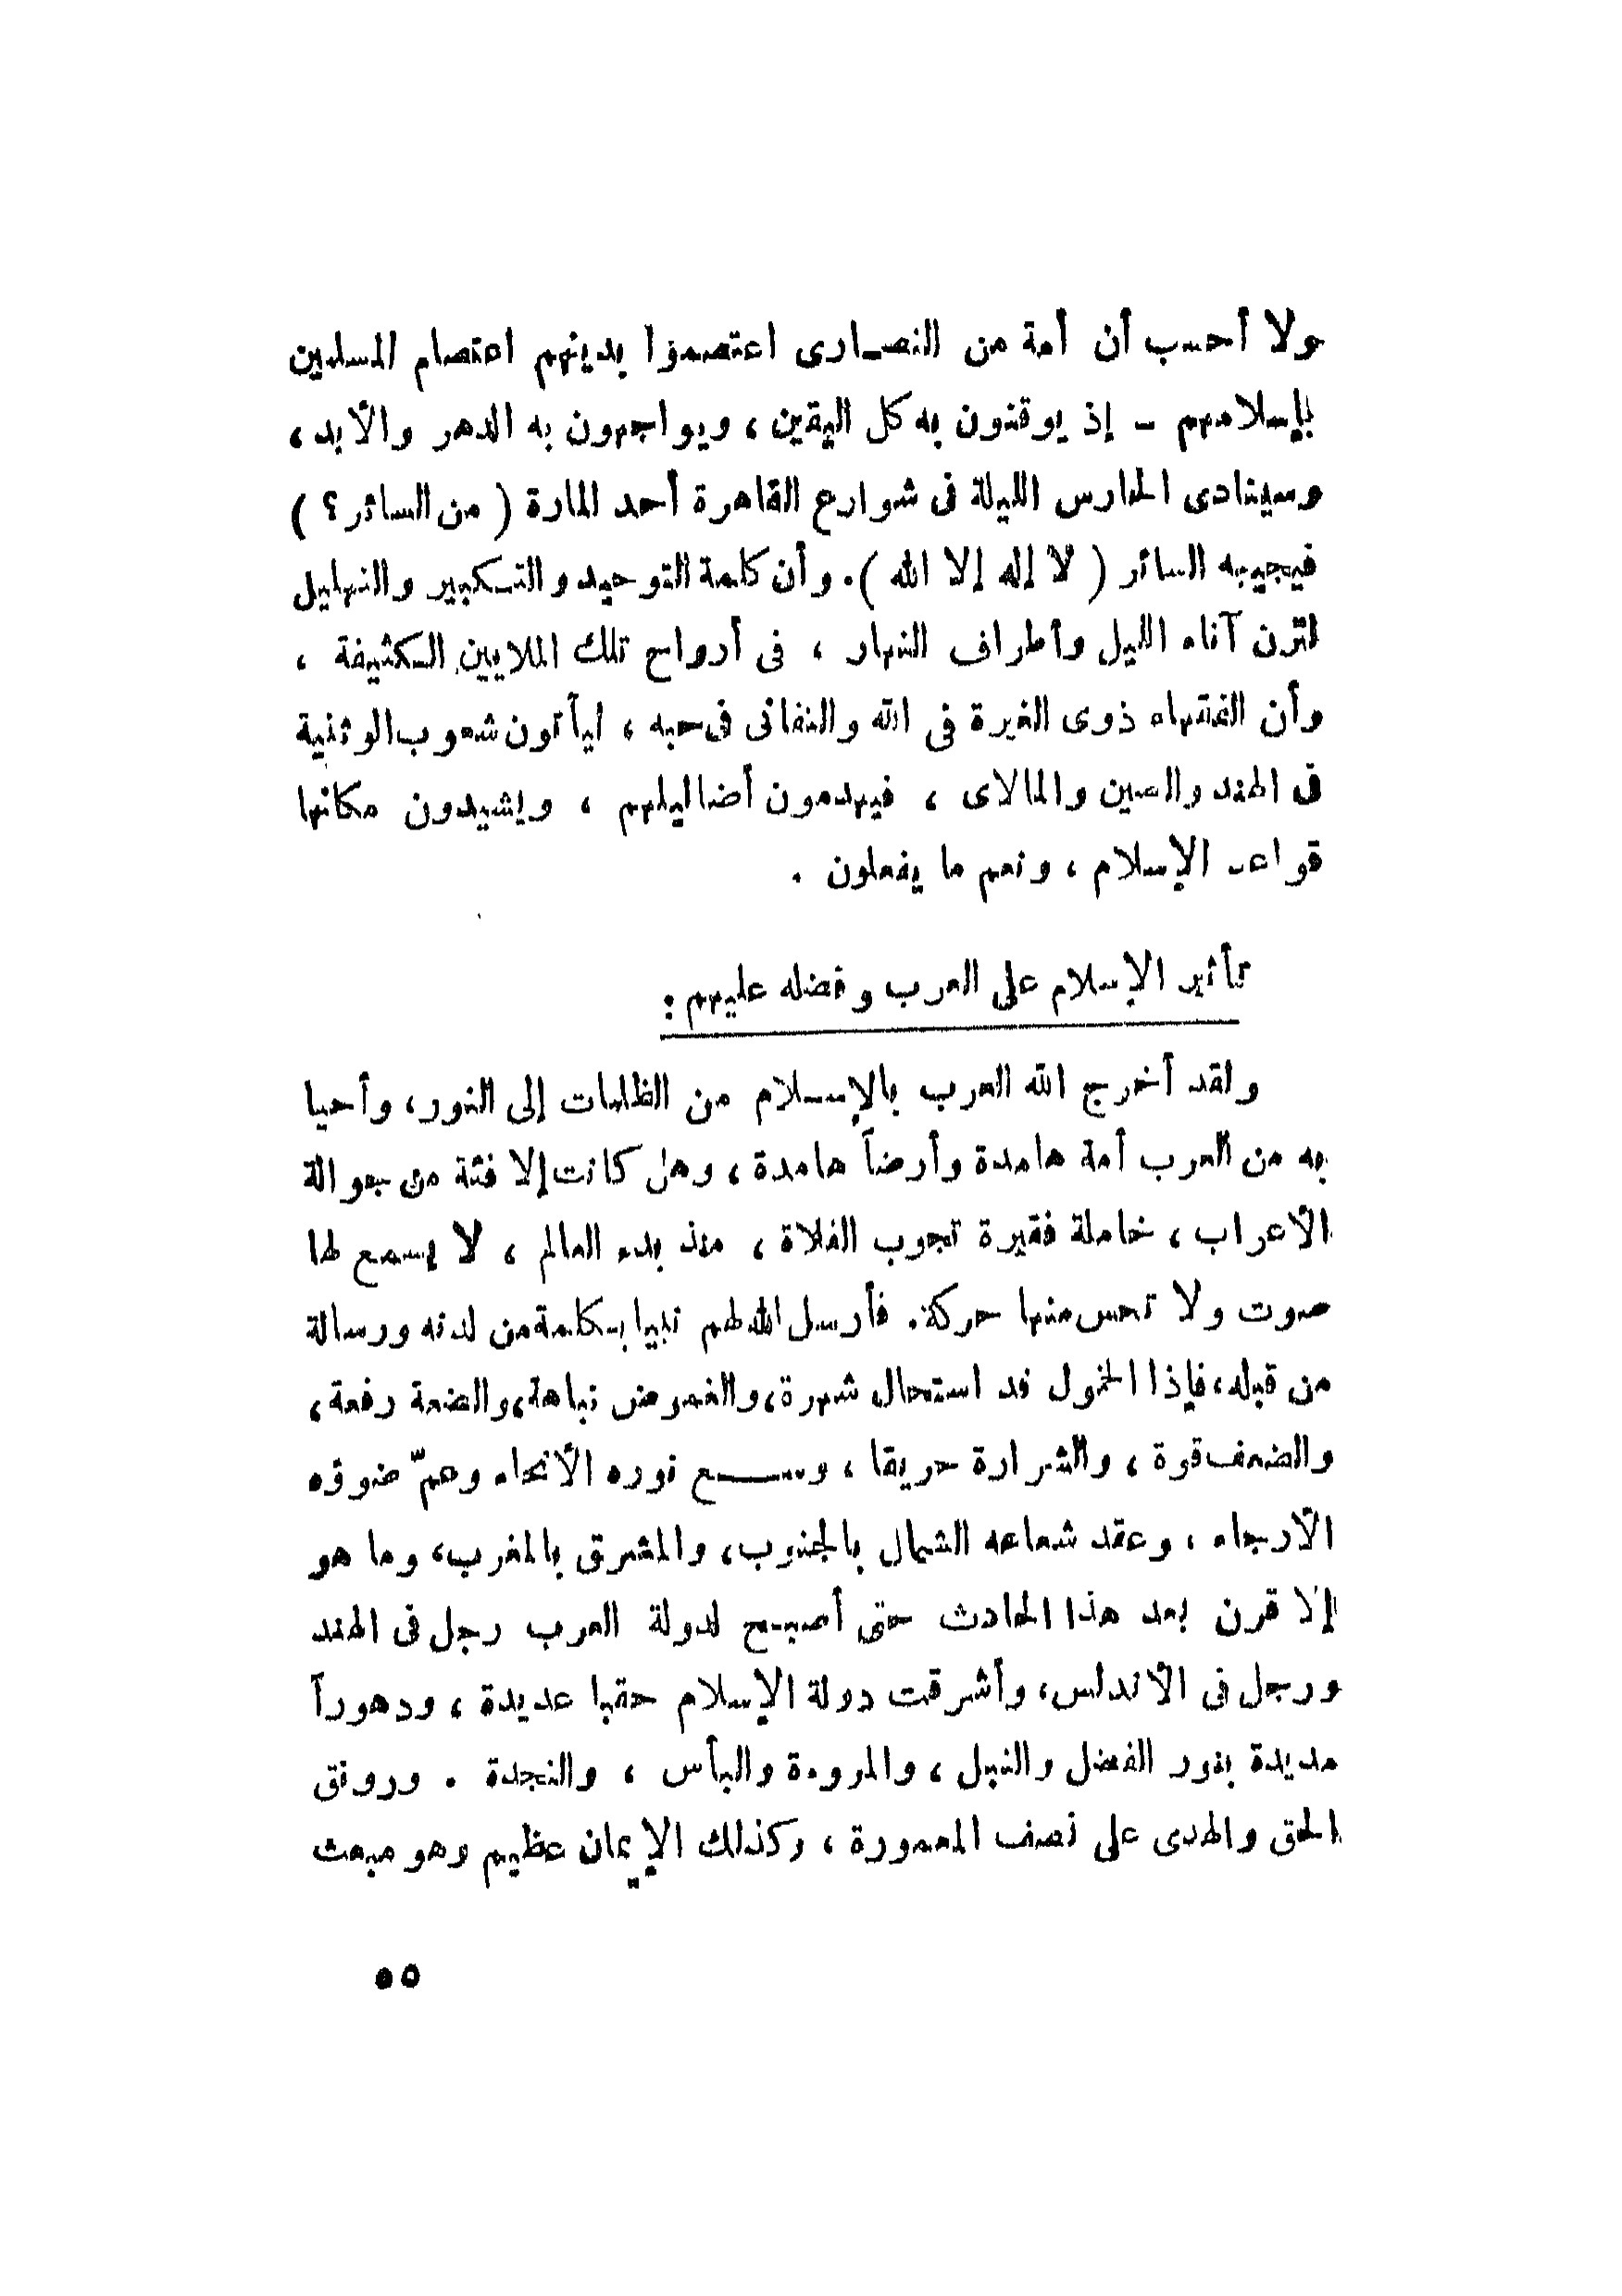 ولا أحسب أن أمة من النصارى اعتصموا بدينهم اعتصام المسلمين
بإسلامهم – إذ يوقنون به كل اليقين ، ويواجهون به الدهر والأبد ،
وسينادى الحارس الليلة فى شوارع القاهرة أحد المارة ( من السائر ؟ )
فيجيبه السائر ( لا إله إلا الله ) . وأن كلمة التوحيد والتكبير والتهليل
لترن آناء الليل وأطراف النهار ، فى أرواح تلك الملايين الكثيفة ،
وأن الفقهاء ذوى الغيرة فى الله والتفانى فى حبه ، ليأتون شعوب الوثنية
فى الهند والصين والمالاى ، فيهدمون أضاليلهم ، ويشيدون مكانها
قواعد الإسلام ، ونعم ما يفعلون .
تأثير الإسلام على العرب وفضله عليهم :
ولقد أخرج الله العرب بالإسلام من الظلمات إلى النور ، وأحيا
به من العرب أمة هامدة وأرضاً هامدة ، وهل كانت إلا فئة من جوالة
الأعراب ، خاملة فقيرة تجوب الفلاة ، منذ بدء العالم ، لا يسمع لها
صوت ولا تحس منها حركة . فأرسل الله لهم نبيا بكلمة من لدنه ورسالة
من قبله ، فإذا الخمول قد استحال شهرة ، والغموض نباهة ، والضعة رفعة ،
والضعف قوة ، والشرارة حريقا ، وسع نوره الأنحاء وعمّ ضوؤه
الأرجاء ، وعقد شعاعه الشمال بالجنوب ، والمشرق بالمغرب ، وما هو
إلا قرن بعد هذا الحادث حتى أصبح لدولة العرب رجل فى الهند
ورجل فى الأندلس ، وأشرقت دولة الإسلام حقبا عديدة ، ودهوراً
مديدة بنور الفضل والنبل ، والمروءة والبأس ، والنجدة . ورونق
الحق والهدى على نصف المعمورة ، وكذلك الإيمان عظيم وهو مبعث
٥٥